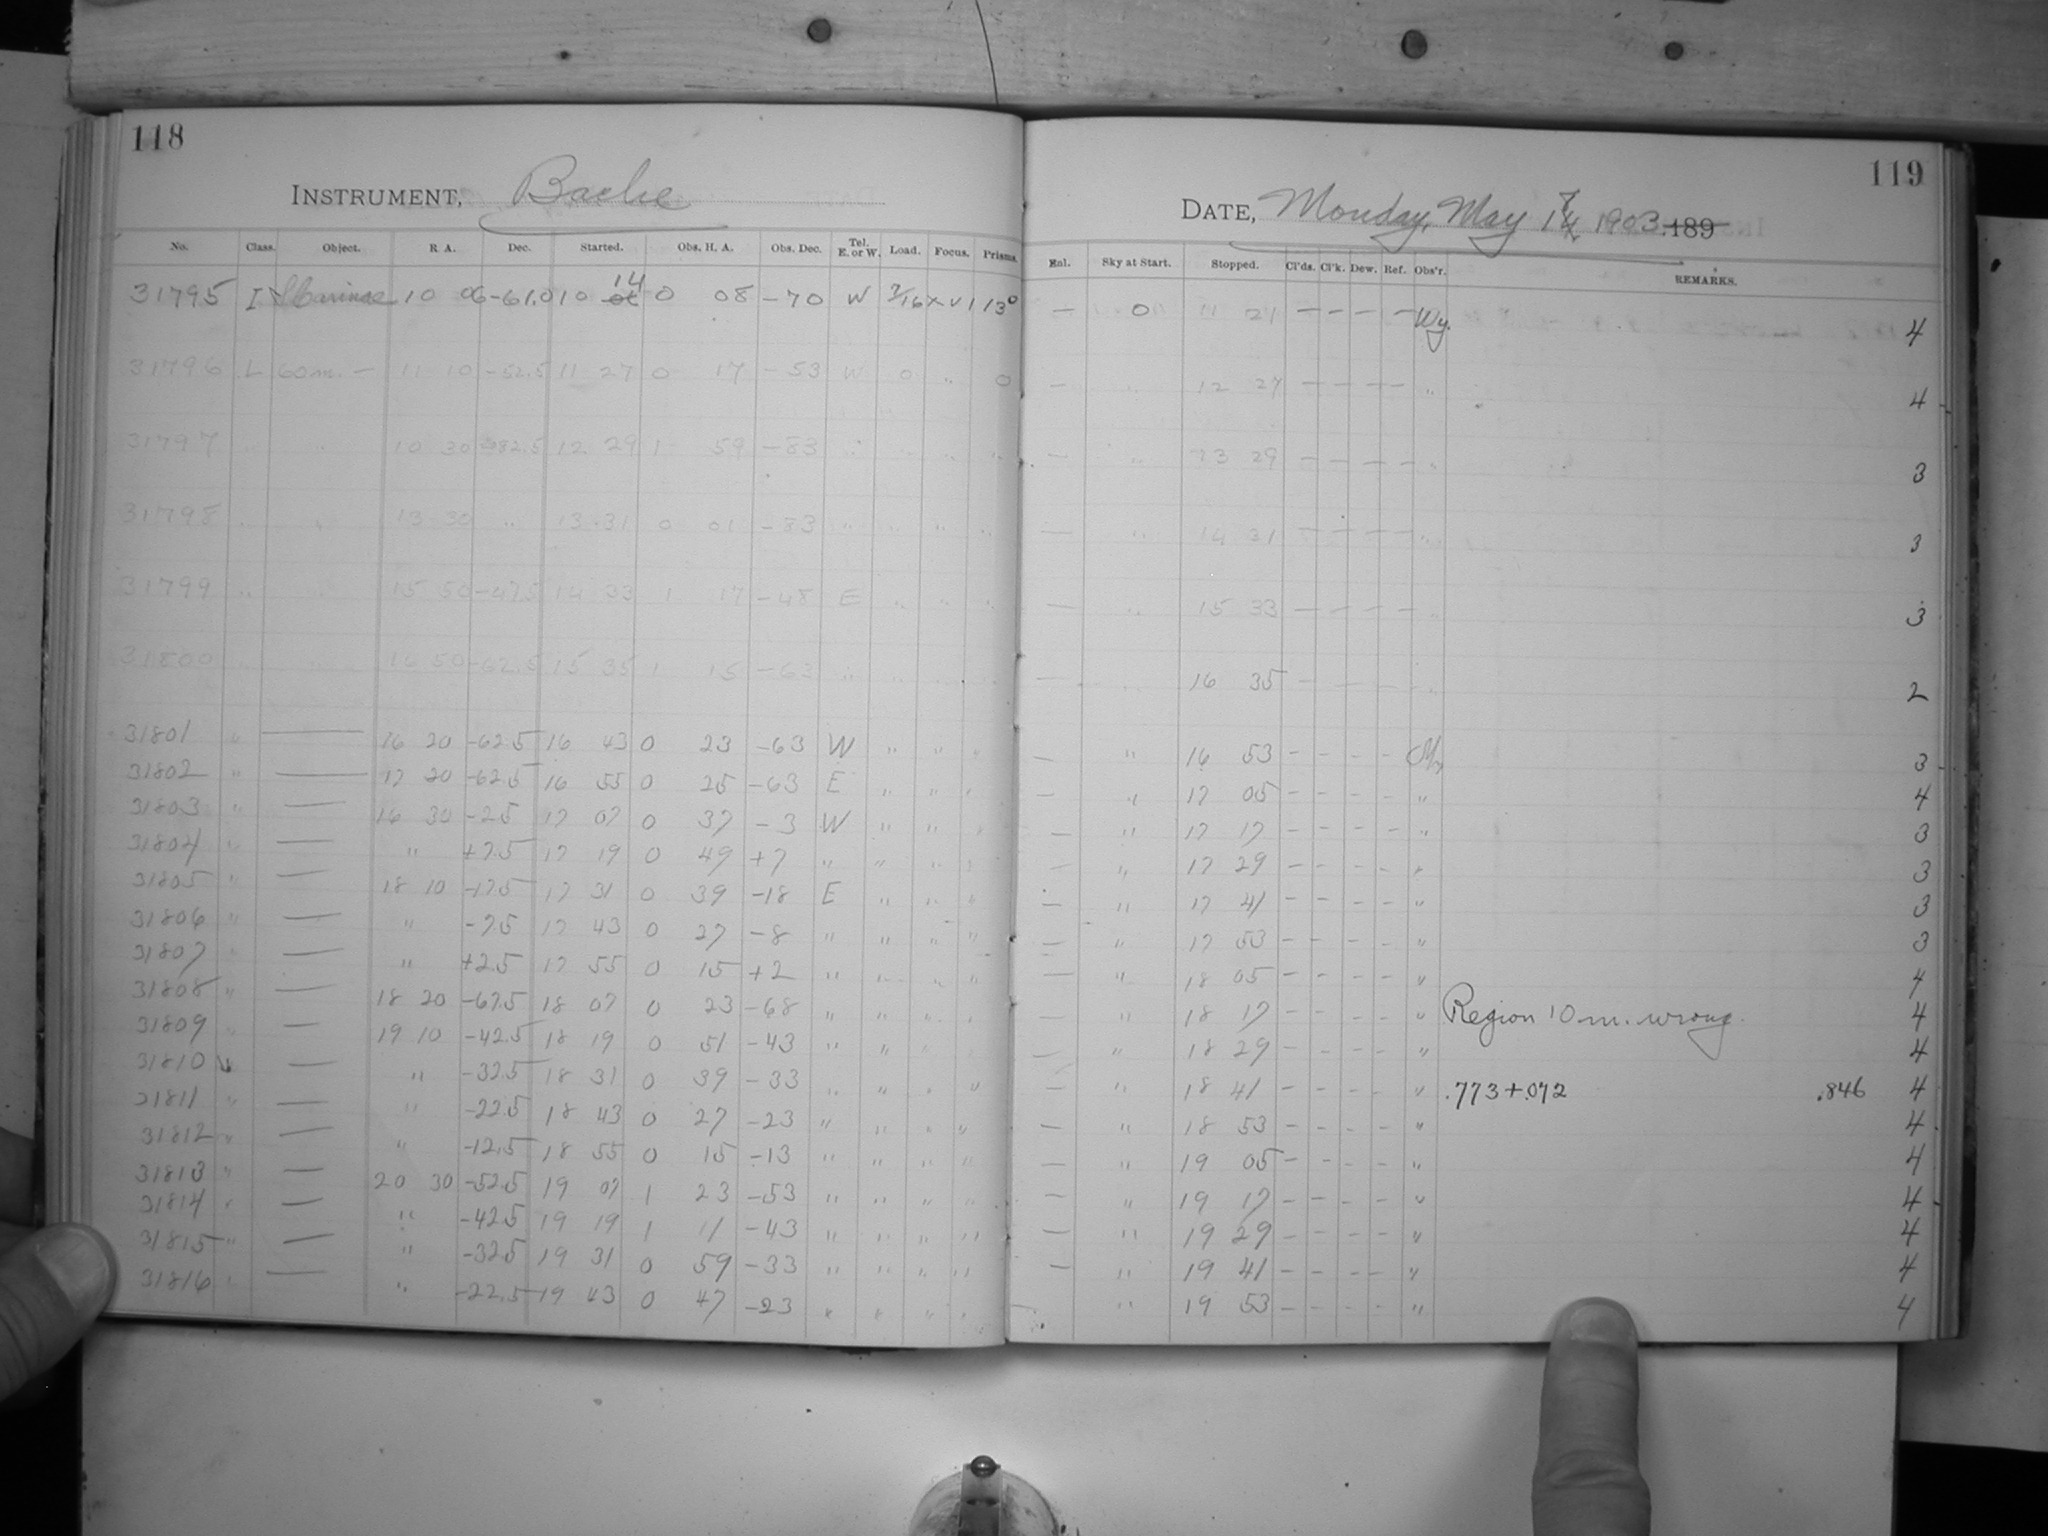 118
INSTRUMENT, Bache
No. Class. Object. R A. Dec. Started. Obs. H. A. Obs. Dec. Tel. E. or W. Load. Focus. Prisms.
31795 I Carinae 10 06 -61.0 10 14 0 08 -70 W XVI 13°
31796 L 60m. — 11 10 -52.5 11 27 0 17 -53 W 0 " 0
31797 " " 10 30 -82.5 12 29 1 59 -83 " " " "
31798 " " 13 30 " 13 31 0 01 -83 " " " "
31799 " 15 50 -47.5 14 33 1 17 -48 E " " "
31800 " 16 50 -62.5 15 35 1 15 -63 " " " "
31801 " — 16 20 -62.5 16 43 0 23 -63 W " " "
31802 " — 17 20 -62.5 16 55 0 25 -63 E " " "
31803 " — 16 30 -2.5 17 07 0 37 -3 W " " "
31804 " — " +7.5 17 19 0 49 +7 " " " "
31805 " — 18 10 -17.5 17 31 0 39 -18 E " " "
31806 " — " -7.5 17 43 0 27 -8 " " " "
31807 " — " +2.5 17 55 0 15 +2 " " " "
31808 " — 18 20 -67.5 18 07 0 23 -68 " " " "
31809 " — 19 10 -42.5 18 19 0 51 -43 " " " "
31810 " — " -32.5 18 31 0 39 -33 " " " "
31811 " — " -22.5 18 43 0 27 -23 " " " "
31812 " — " -12.5 18 55 0 15 -13 " " " "
31813 " — 20 30 -52.5 19 07 1 23 -53 " " " "
31814 " — " -42.5 19 19 1 11 -43 " " " "
31815 " — " -32.5 19 31 0 59 -33 " " " "
31816 " — " -22.5 19 43 0 47 -23 " " " "
119
DATE, Monday, May 1903 189
Enl. Sky at Start. Stopped. Cl'ds. Cl'k. Dew. Ref. Obs'r. REMARKS.
— 0 11 21 — — — — Wy. 4
— " 12 27 — — — — " 4
— " 13 29 — — — — " 3
— " 14 31 — — — — " 3
— " 15 33 — — — — " 3
— " 16 35 — — — — " 2
— " 16 53 — — — — 3
— " 17 05 — — — — " 4
— " 17 17 — — — — " 3
— " 17 29 — — — — " 3
— " 17 41 — — — — " 3
— " 17 53 — — — — " 3
— " 18 05 — — — — " 4
— " 18 17 — — — — " Region 10m. wrong. 4
— " 18 29 — — — — " 4
— " 18 41 — — — — " .773+.072 .846 4
— " 18 53 — — — — " 4
— " 19 05 — — — — " 4
— " 19 17 — — — — " 4
— " 19 29 — — — — " 4
— " 19 41 — — — — " 4
— " 19 53 — — — — " 4